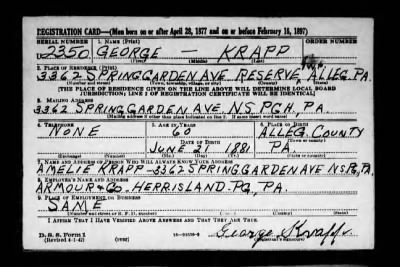 REGISTRATION CARD—(Men born on or after April 28, 1877 and on or before February 16, 1897)
SERIAL NUMBER 1. NAME (Print) ORDER NUMBER
2350 GEORGE — KRAPP
(First) (Middle) (Last)
2. PLACE OF RESIDENCE (Print)
3362 SPRING GARDEN AVE RESERVE ALLEG. PA.
(Number and street) (Town, township, village, or city) (County) (State)
[THE PLACE OF RESIDENCE GIVEN ON THE LINE ABOVE WILL DETERMINE LOCAL BOARD
JURISDICTION; LINE 2 OF REGISTRATION CERTIFICATE WILL BE IDENTICAL]
3. MAILING ADDRESS
3362 SPRING GARDEN AVE. N.S. PGH., PA.
[Mailing address if other than place indicated on line 2. If same insert word same]
4. TELEPHONE 5. AGE IN YEARS 6. PLACE OF BIRTH
NONE 60 ALLEG. COUNTY
DATE OF BIRTH
JUNE 21 1881 PA.
(Exchange) (Number) (Mo.) (Day) (Yr.) (State or country)
7. NAME AND ADDRESS OF PERSON WHO WILL ALWAYS KNOW YOUR ADDRESS
AMELIE KRAPP—3362 SPRING GARDEN AVE N.S. PG, PA.
8. EMPLOYER'S NAME AND ADDRESS
ARMOUR & CO. HERRISLAND. PG, PA.
9. PLACE OF EMPLOYMENT OR BUSINESS
SAME
(Number and street or R. F. D. number) (Town) (County) (State)
I AFFIRM THAT I HAVE VERIFIED ABOVE ANSWERS AND THAT THEY ARE TRUE.
D. S. S. Form 1
(Revised 4-1-42) (over)
George Krapp